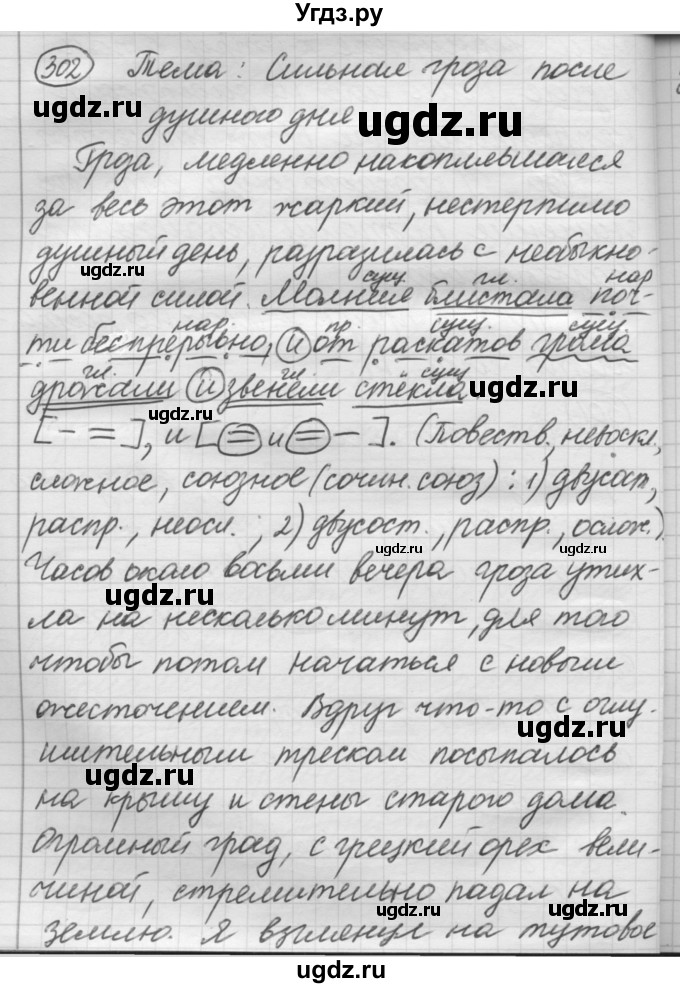 Угдз.ру
302 Тема: Сильная гроза после
ugdz.ru
душного дня
ugdz.ru
Гроза, медленно накоплявшаяся
за весь этот жаркий, нестерпимо
душный день, разразилась с необыкно-
ugdz.ru
сущ. гл. нар
венной силой. Молния блистала поч-
нар. пр. сущ. сущ.
ти беспрерывно, и от раскатов грома
гл. гл. сущ
дрожали и звенели стёкла
ugdz.ru
[- =], и [= и = -]. (Повеств., невоскл.,
сложное, союзное (сочин. союз): 1) двусост.,
распр., неосл.; 2) двусост., распр., ослож.)
ugdz.ru
Часов около восьми вечера гроза утих-
ugdz.ru
ла на несколько минут, для того
чтобы потом начаться с новым
ожесточением. Вдруг что-то с оглу-
ugdz.ru
шительным треском посыпалось
ugdz.ru
на крышу и стены старого дома.
Огромный град, с грецкий орех вели-
чиной, стремительно падал на
ugdz.ru ugdz.ru
землю. Я взглянул на тутовое
ugdz.ru